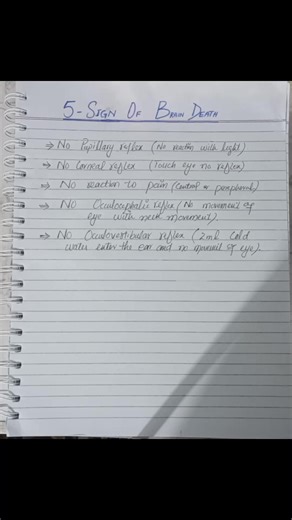 5-SIGN OF BRAIN DEATH
⇒ No Pupillary reflex (No reaction with light)
⇒ No Corneal reflex (Touch eye no reflex)
⇒ No reaction to pain (Central & peripheral)
⇒ No Oculocephalic reflex (No movement of
eye with neck movement)
⇒ No Oculovestibular reflex (2ml Cold
water enter the ear and no movement of eye).